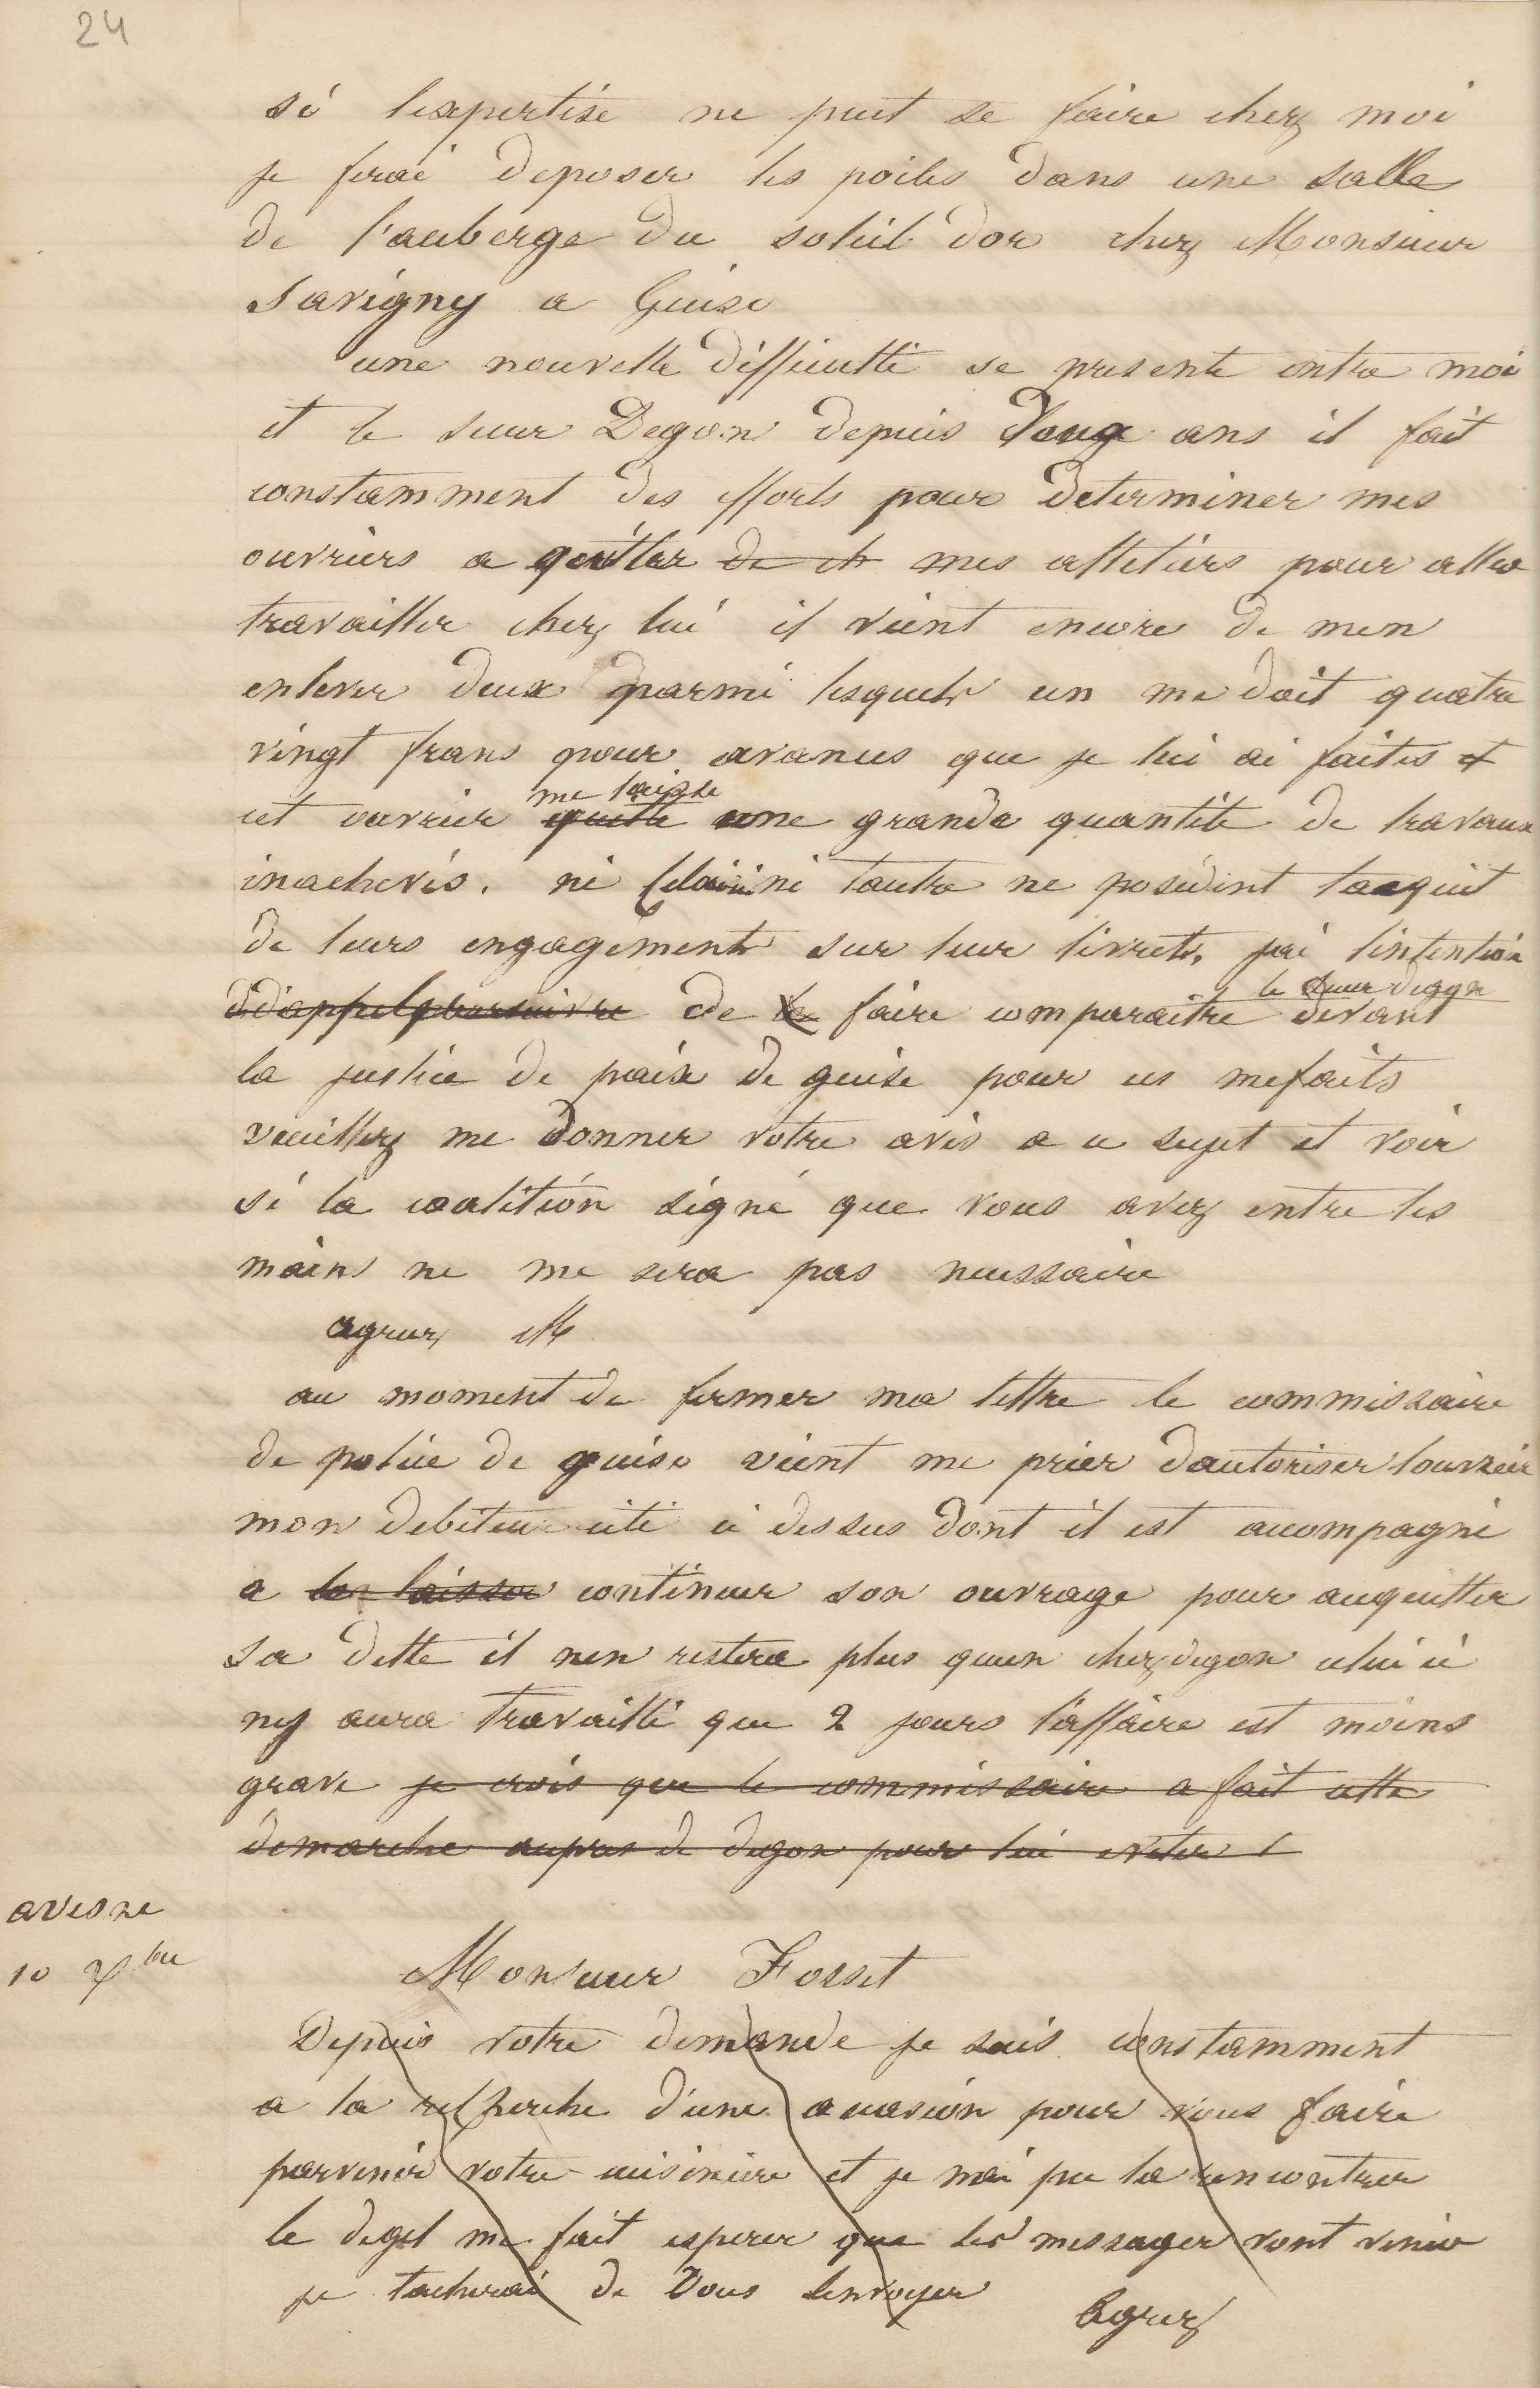 24
si lexpertise ne peut se faire chez moi
je ferai deposer les poiles dans une salle
de l'auberge du soleil dor chez Monsieur
Savigny a Guise
une nouvelle difficulté se presente entre moi
et le sieur Degon depuis deux ans il fait
constamment des efforts pour determiner mes
ouvriers a quitter de ch mes atteliers pour aller
travailler chez lui il vient encore de men
enlever deux parmi lesquels un me doit quatre
vingt frans pour avances que je lui ai faites et
me laisse
cet ouvrier quitte une grande quantité de travaux
inachevés. ni celui ni lautre ne posèdent lacquit
de leurs engagements sur leur livrets, jai lintention
le sieur degon
de faire comparaitre devant
la justice de paix de guise pour ces mefaits
veuillez me donner votre avis a ce sujet et voir
si la coalition signé que vous avez entre les
mains ne me sera pas necessaire
agreez M
au moment de fermer ma lettre le commissaire
de police de guise vient me prier dautoriser louvrier
mon debiteur cité ci dessus dont il est acompagné
a le laisser continuer son ouvrage pour acquitter
sa dette il nen restera plus quun chez degon celui ci
ny aura travaillé que 2 jours l'affaire est moins
grave je crois que le commissaire a fait cette
demarche aupres de degon pour lui eviter l
avesne
10 Xbre
Monsieur Fosset
Depuis votre demande je suis constamment
a la recherche d'une occasion pour vous faire
parvenir votre cuisiniere et je nai pu la rencontrer
le degel me fait esperer que les messager vont venir
je tacherai de vous lenvoyer
Agreez